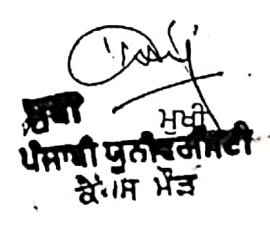 ਮੁਖੀ
ਪੰਜਾਬੀ ਯੂਨੀਵਰਸਿਟੀ
ਕੈਂਪਸ ਮੌੜ